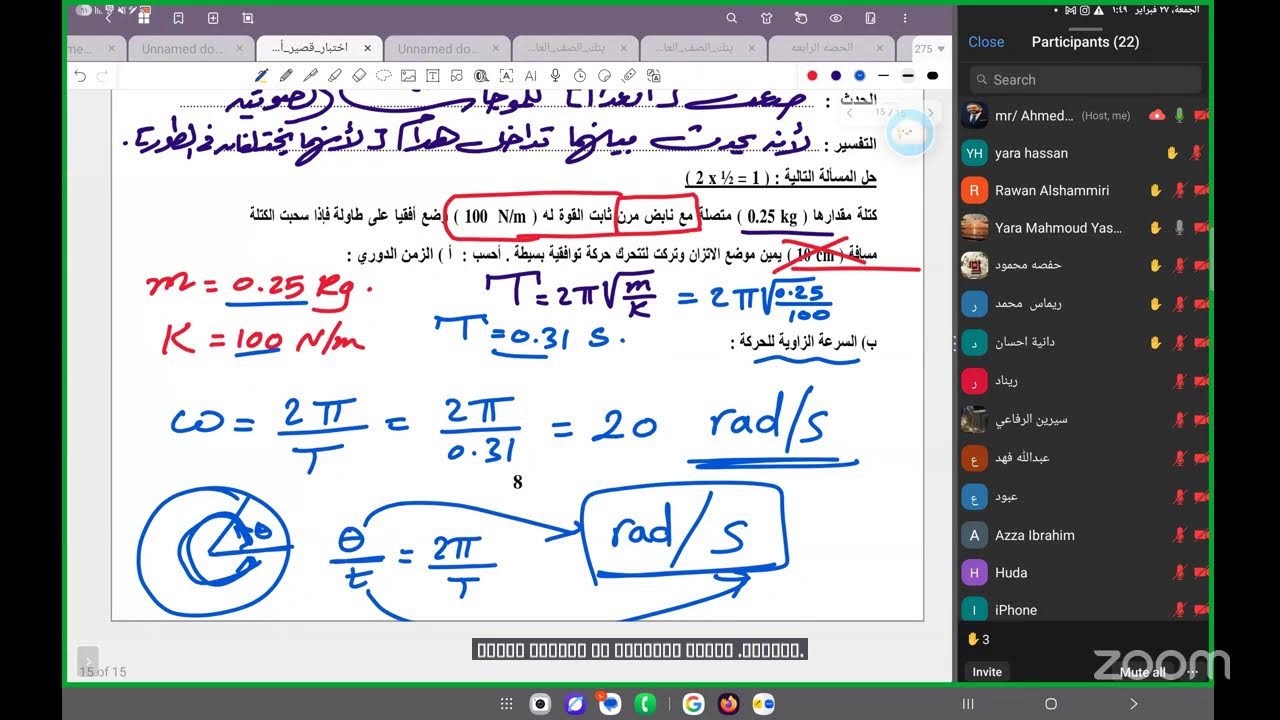 الجمعة، ٢٧ فبراير ١:٤٩
Unnamed do...
اختبار_قصير_أ...
Unnamed do...
بنك_الصف_العا...
بنك_الصف_العا...
الحصة الرابعه
275
الحدث :
15 / 15
التفسير : لأنه يحدث بينهما تداخل هدام
حل المسألة التالية : ( 1 = ½ x 2 )
كتلة مقدارها ( 0.25 kg ) متصلة مع نابض مرن ثابت القوة له ( 100 N/m ) وضع أفقيا على طاولة فإذا سحبت الكتلة
مسافة ( 10 cm ) يمين موضع الاتزان وتركت لتتحرك حركة توافقية بسيطة . أحسب : أ ) الزمن الدوري :
m = 0.25 Kg.
T = 2π√m/K = 2π√0.25/100
K = 100 N/m
T = 0.31 s.
ب) السرعة الزاوية للحركة :
ω = 2π/T = 2π/0.31 = 20 rad/s
8
θ
θ/t = 2π/T
rad/s
15 of 15
Close
Participants (22)
Search
mr/ Ahmed... (Host, me)
YH yara hassan
R Rawan Alshammiri
Yara Mahmoud Yas...
حفصه محمود
ر ريماس محمد
د دانية احسان
ر ريناد
سيرين الرفاعي
ع عبدالله فهد
ع عبود
A Azza Ibrahim
H Huda
I iPhone
3
Invite
Mute all
zoom